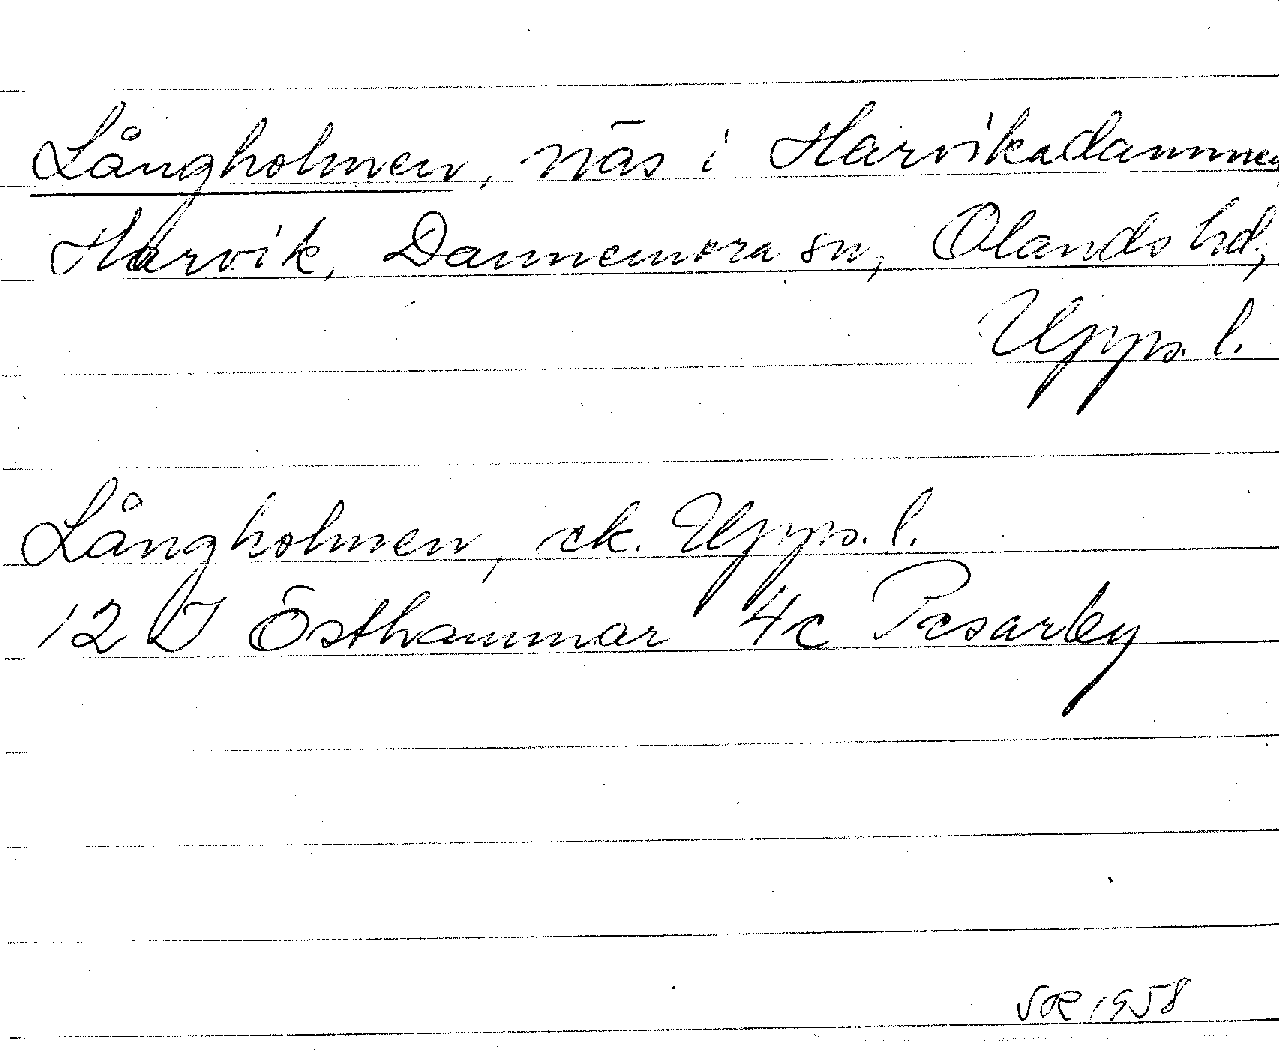 Långholmen, näs i Harvikadammen,
Harvik, Dannemora sn, Olands hd,
Upps. l.
Långholmen, ek. Upps. l.
12 I Östhammar 4c Pesarby
1958